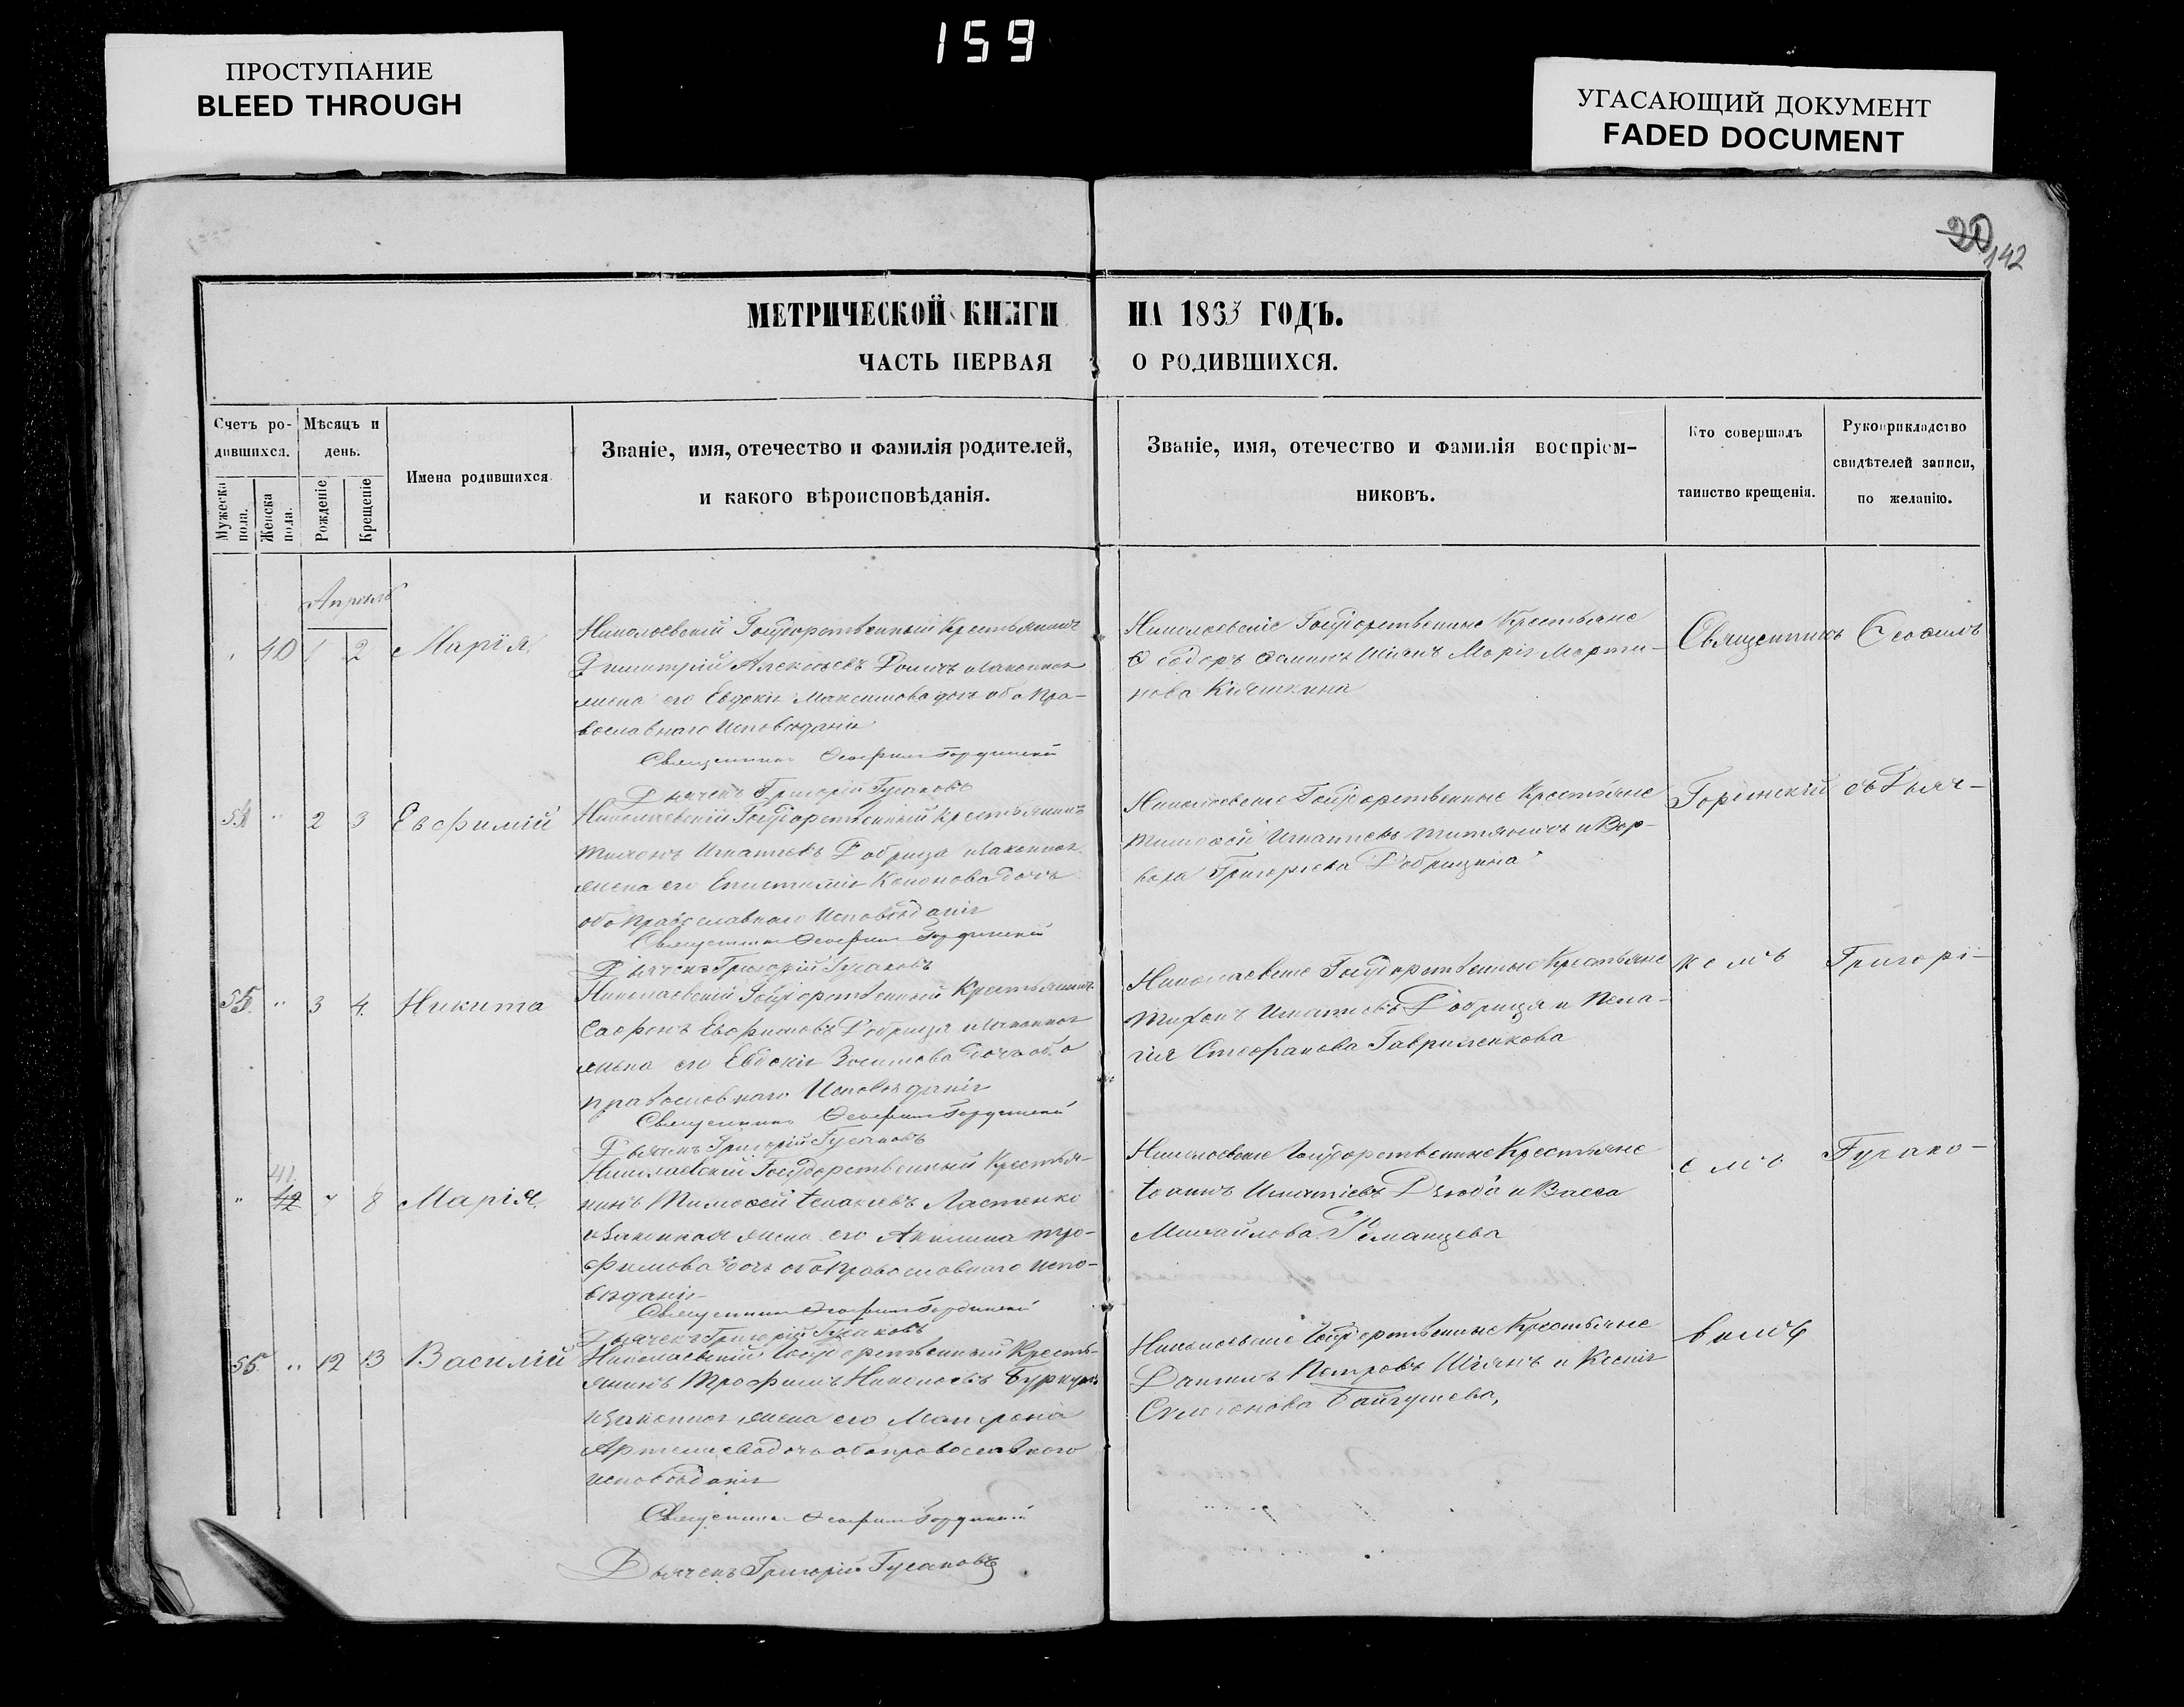 159
ПРОСТУПАНИЕ
BLEED THROUGH
УГАСАЮЩИЙ ДОКУМЕНТ
FADED DOCUMENT
20
142
МЕТРИЧЕСКОЙ КНИГИ НА 1863 ГОДЪ.
ЧАСТЬ ПЕРВАЯ О РОДИВШИХСЯ.
Счетъ ро-
дившихся.
Мужеска
пола.
Женска
пола.
Мѣсяцъ и
день.
Рожденіе
Крещеніе
Имена родившихся
Званіе, имя, отечество и фамилія родителей,
и какого вѣроисповѣданія.
Званіе, имя, отечество и фамилія воспріем-
никовъ.
Кто совершалъ
таинство крещенія.
Рукоприкладство
свидѣтелей записи,
по желанію.
Апрѣль
40 1 2 Марія
Николаевскій Государственный Крестьянинъ
Димитрій Алексѣевъ и законная
жена его Евдокія Максимова дочь оба Пра-
вославнаго Исповѣданія
Священникъ Ѳеофилъ
Дьячекъ Григорій Гусаковъ
Николаевскіе Государственные Крестьяне
Ѳедоръ Шіянъ Марія Марти-
нова
Священникъ Ѳеофилъ
" 2 3 Евфимій
Николаевскій Государственный крестьянинъ
Тихонъ Игнатіевъ Добрица и законная
жена его Епистимія Кононова дочь
оба Православнаго Исповѣданія
Священникъ Ѳеофилъ
Дьячекъ Григорій Гусаковъ
Николаевскіе Государственные Крестьяне
Тимоѳей Игнатіевъ и Вар-
вара Григорієва Добрицина
съ Дьяч-
" 3 4 Никита
Николаевскій Государственный Крестьянинъ
Сафонъ Евфимовъ Добрица и законная
жена его Евдокія Зосимова дочь оба
православнаго Исповѣданія
Священникъ Ѳеофилъ
Дьячекъ Григорій Гусаковъ
Николаевскіе Государственные Крестьяне
Тихонъ Игнатіевъ Добрица и Пела-
гія Стефанова Гавриленкова
комъ Григорі-
41
42
" 8 Марія
Николаевскій Государственный Крестья-
нинъ Тимоѳей Ластенко
и законная жена его Акилина Тро-
фимова дочь оба Православнаго испо-
вѣданія
Священникъ Ѳеофилъ
Дьячекъ Григорій Гусаковъ
Николаевскіе Государственные Крестьяне
Іоаннъ Игнатіевъ Дзюба и Васса
Михайлова
емъ Гусако-
" 12 13 Василій
Николаевскій Государственный Кресть-
янинъ Трофимъ Николаевъ
и законная жена его Матрона
Артемиева дочь оба православнаго
исповѣданія
Священникъ Ѳеофилъ
Дьячекъ Григорій Гусаковъ
Николаевскіе Государственные Крестьяне
Даніилъ Петровъ Шіянъ и Ксенія
Симеонова
вымъ